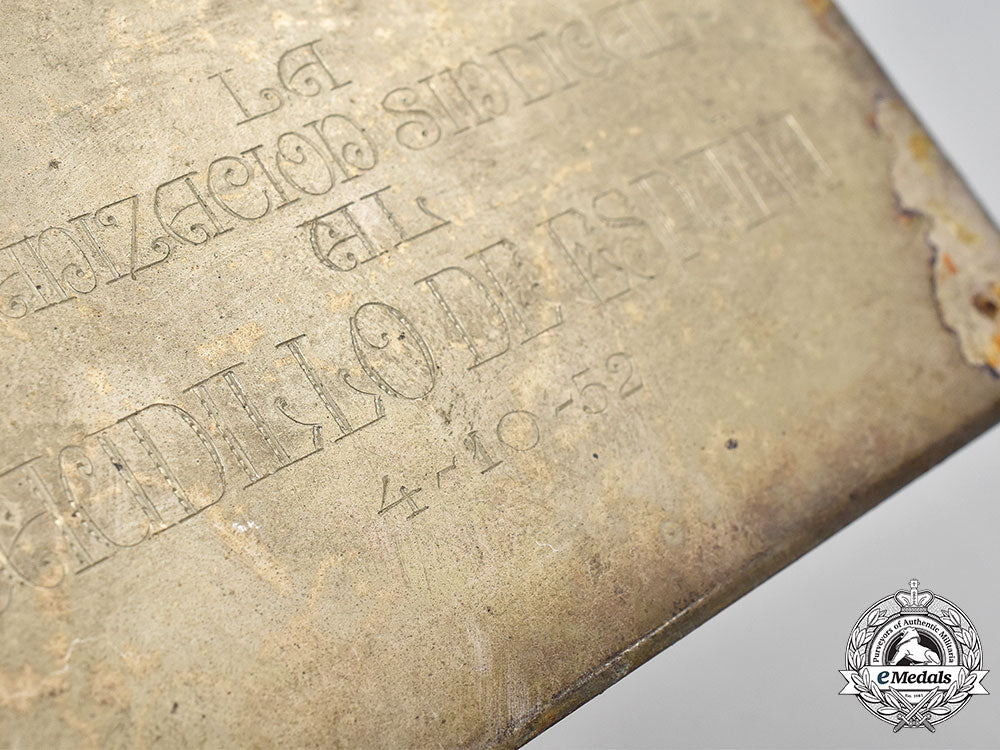 LA
ANIZACION SINDICAL
AL
AUDILLO DE ESPAÑA
4-10-52
Purveyors of Authentic Militaria
eMedals
Est. 1985